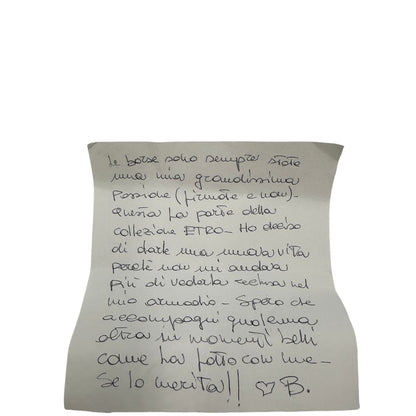 le borse sono sempre state
una mia grandissima
passione (firmate e non)-
questa fa parte della
collezione ETRO- Ho deciso
di darle una nuova vita
perchè non mi andava
più di vederla chiusa nel
mio armadio- Spero che
accompagni qualcuna
altra in momenti belli
come ha fatto con me-
Se lo merita!! ♡ B.